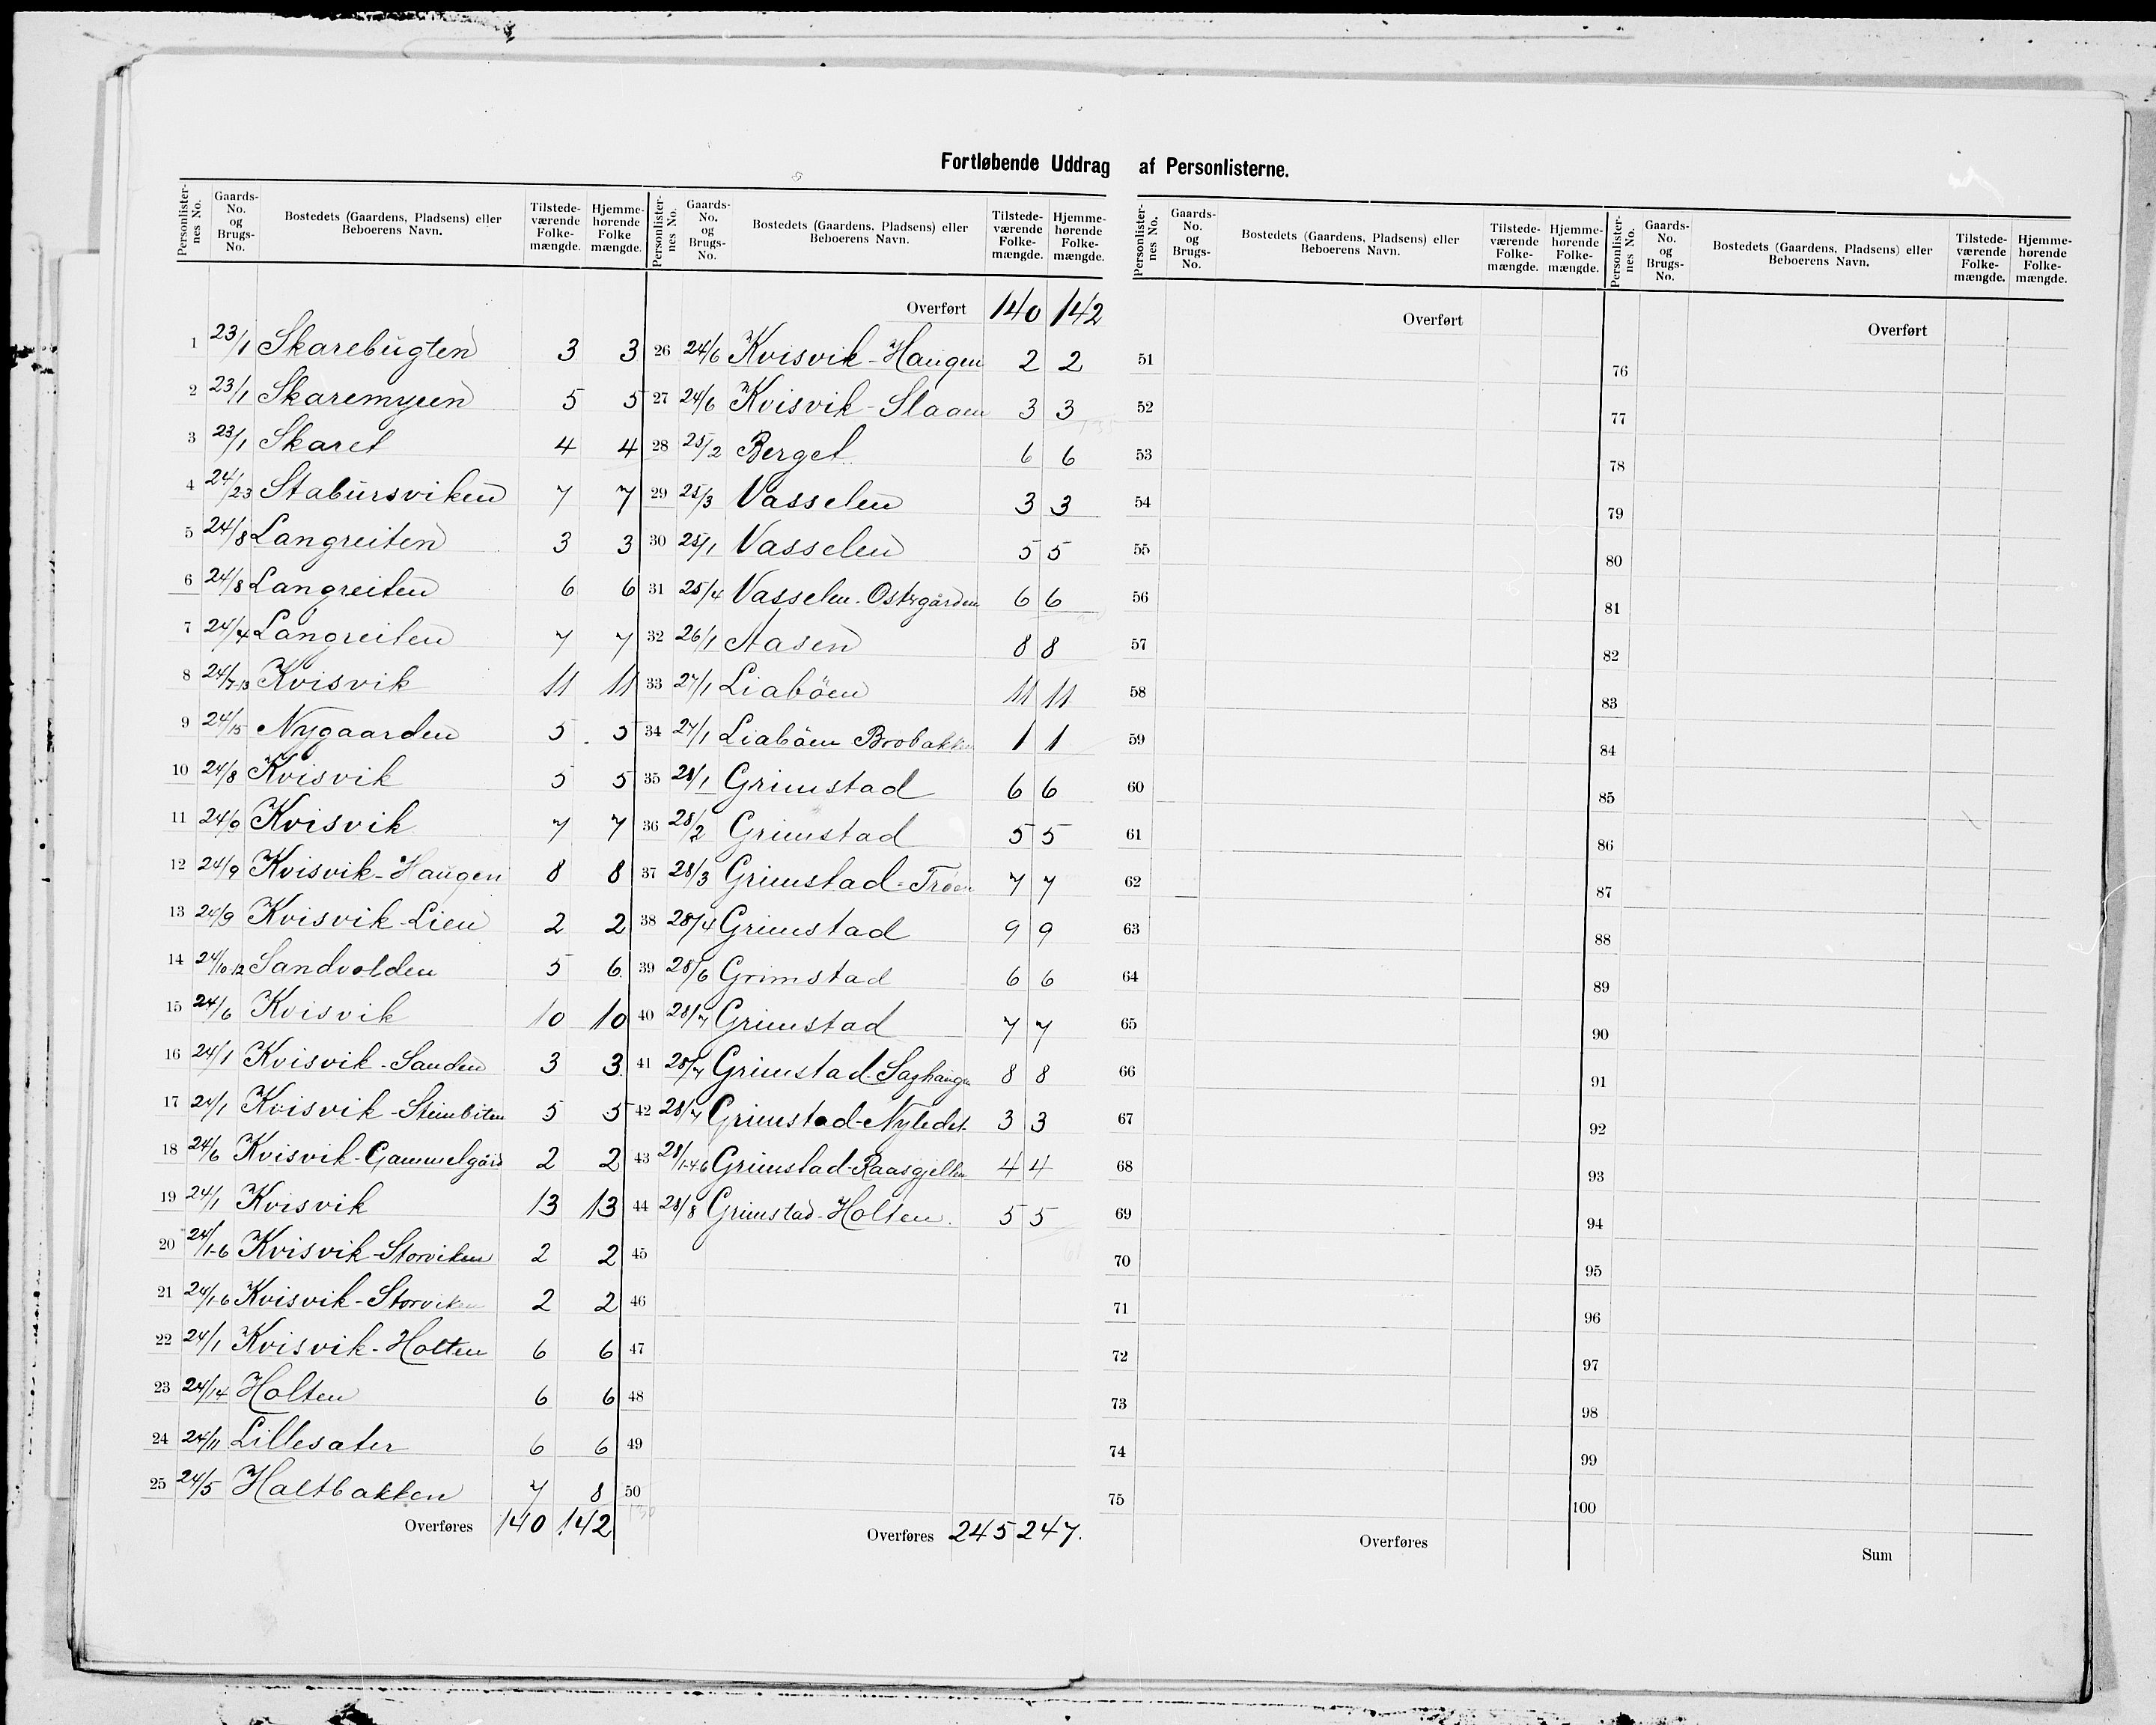 Fortløbende Uddrag af Personlisterne.
Personlister-nes No. Gaards-No. og Brugs-No. Bostedets (Gaardens, Pladsens) eller Beboerens Navn. Tilstede-værende Folke-mængde. Hjemme-hørende Folke mængde.
1 23/1 Skarebugten 3 3
2 23/1 Skaremyren 5 5
3 23/1 Skaret 4 4
4 24/23 Stabursviken 7 7
5 24/8 Langreiten 3 3
6 24/8 Langreiten 6 6
7 24/4 Langreiten 7 7
8 24/7-13 Kvisvik 11 11
9 24/15 Nygaarden 5 5
10 24/8 Kvisvik 5 5
11 24/9 Kvisvik 7 7
12 24/9 Kvisvik-Haugen 8 8
13 24/9 Kvisvik-Lien 2 2
14 24/10-12 Sandvolden 5 6
15 24/6 Kvisvik 10 10
16 24/1 Kvisvik-Sanden 3 3
17 24/1 Kvisvik-Steinbiten 5 5
18 24/6 Kvisvik-Gammelgård 2 2
19 24/1 Kvisvik 13 13
20 24/1-6 Kvisvik-Storviken 2 2
21 24/1-6 Kvisvik-Storviken 2 2
22 24/1 Kvisvik-Holten 6 6
23 24/14 Holten 6 6
24 24/11 Lillesater 6 6
25 24/5 Haltbakken 7 8
Overføres 140 142
Personlister-nes No. Gaards-No. og Brugs-No. Bostedets (Gaardens, Pladsens) eller Beboerens Navn. Tilstede-værende Folke-mængde. Hjemme-hørende Folke-mængde.
Overført 140 142
26 24/6 Kvisvik-Haugen 2 2
27 24/6 Kvisvik-Slaaen 3 3
28 25/2 Berget 6 6
29 25/3 Vasselen 3 3
30 25/1 Vasselen 5 5
31 25/4 Vasselen-Ostrgården 6 6
32 26/1 Aasen 8 8
33 27/1 Liabøen 11 11
34 27/1 Liabøen Brobakken 1 1
35 28/1 Grimstad 6 6
36 28/2 Grimstad 5 5
37 28/3 Grimstad-Trøen 7 7
38 28/4 Grimstad 9 9
39 28/6 Grimstad 6 6
40 28/7 Grimstad 7 7
41 28/7 Grimstad-Saghaugen 8 8
42 28/7 Grimstad-Nyledet 3 3
43 28/1-4-6 Grimstad-Raasgjellen 4 4
44 28/8 Grimstad-Holten. 5 5
45
46
47
48
49
50
Overføres 245 247.
Personlister-nes No. Gaards-No. og Brugs-No. Bostedets (Gaardens, Pladsens) eller Beboerens Navn. Tilstede-værende Folke-mængde. Hjemme-hørende Folke-mængde.
Overført
51
52
53
54
55
56
57
58
59
60
61
62
63
64
65
66
67
68
69
70
71
72
73
74
75
Overføres
Personlister-nes No. Gaards-No. og Brugs-No. Bostedets (Gaardens, Pladsens) eller Beboerens Navn. Tilstede-værende Folke-mængde. Hjemme-hørende Folke-mængde.
Overført
76
77
78
79
80
81
82
83
84
85
86
87
88
89
90
91
92
93
94
95
96
97
98
99
100
Sum